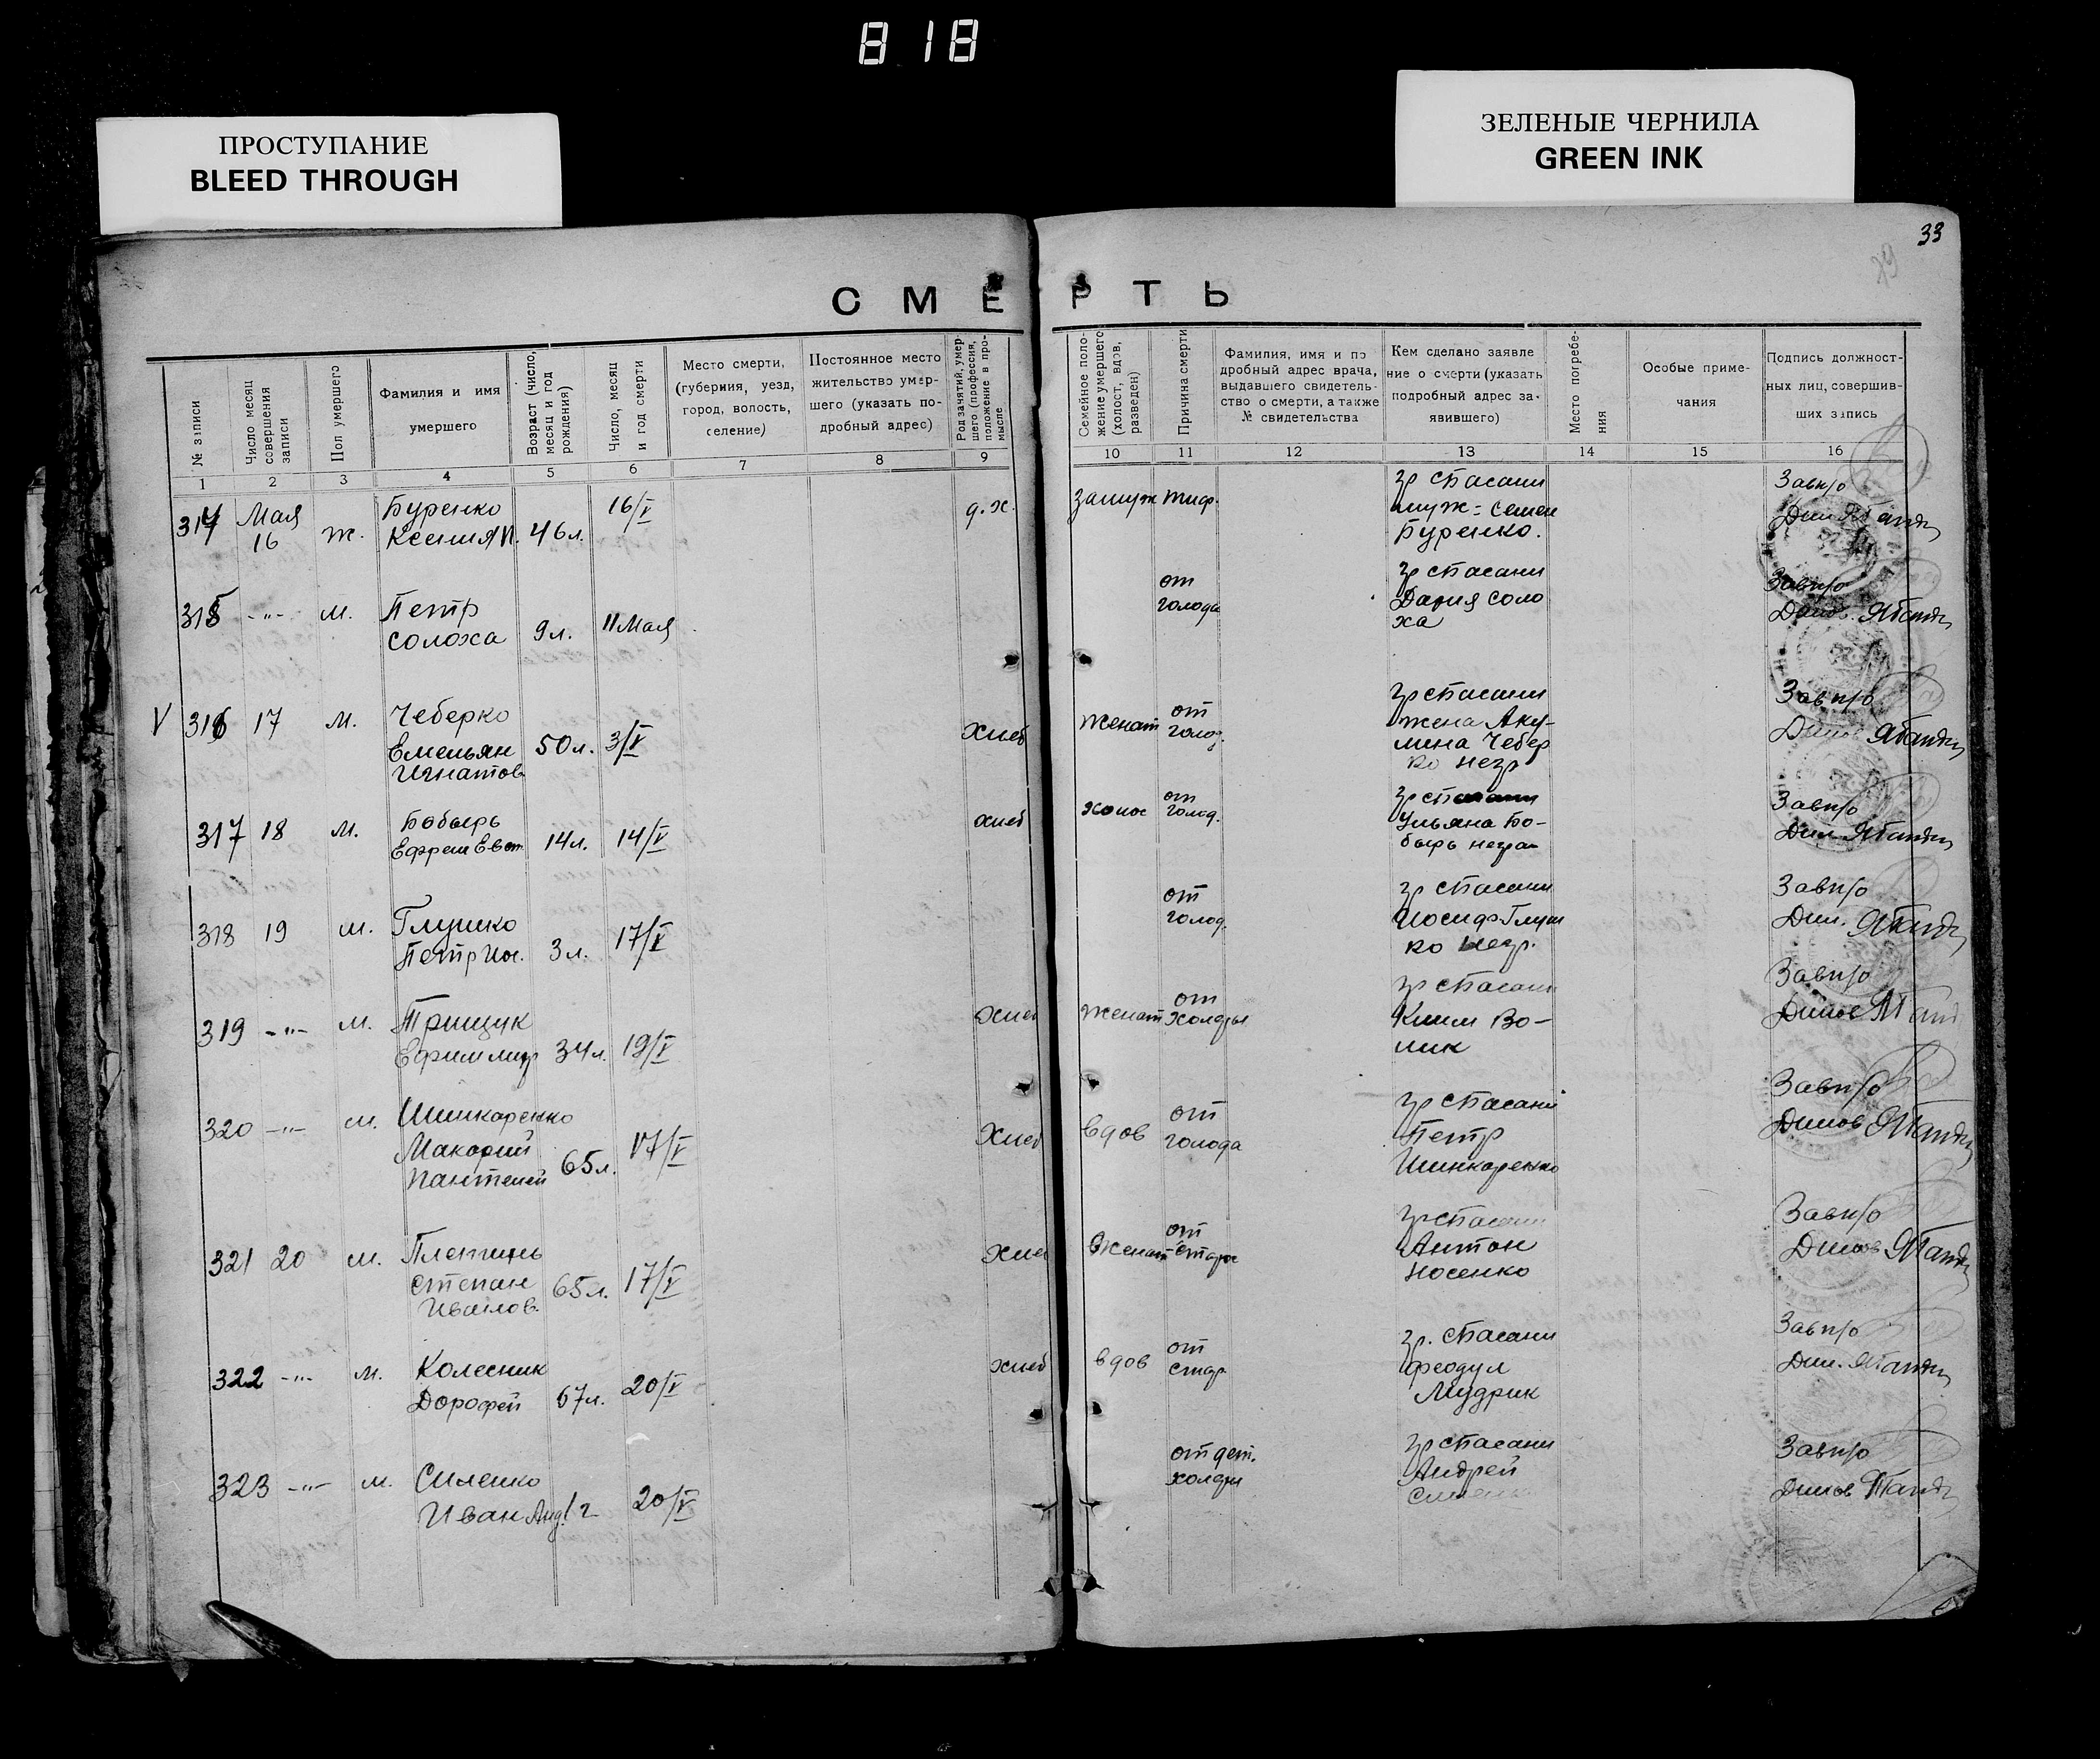 818
ПРОСТУПАНИЕ
BLEED THROUGH
ЗЕЛЕНЫЕ ЧЕРНИЛА
GREEN INK
33
СМЕРТЬ
№ записи
Число месяц
совершения
записи
Пол умершего
Фамилия и имя
умершего
Возраст (число,
месяц и год
рождения)
Число, месяц
и год смерти
Место смерти,
(губерния, уезд,
город, волость,
селение)
Постоянное место
жительство умер-
шего (указать по-
дробный адрес)
Род занятий, умер-
шего (профессия,
положение в про-
мысле
Семейное поло-
жение умершего
(холост, вдов,
разведен)
Причина смерти
Фамилия, имя и по
дробный адрес врача,
выдавшего свидетель-
ство о смерти, а также
№ свидетельства
Кем сделано заявле
ние о смерти (указать
подробный адрес за-
явившего)
Место погребе-
ния
Особые приме-
чания
Подпись должност-
ных лиц, совершив-
ших запись
1 2 3 4 5 6 7 8 9 10 11 12 13 14 15 16
314 Мая 16 ж. Буренко
Ксения 46л. 16/V
замуж тиф.
гр Спасани
муж-Семен
Буренко.
Завп/о
315 -"- м. Петр
Солоха 9л. 11 Мая
от
голода
гр Спасани
Дария Соло
ха
Завп/о
V 316 17 м. Чеберко
Емельян
Игнатов 50л. 3/V
хлеб женат от
голод.
гр Спасани
жена Аку-
лина Чебер
ко негр
Завп/о
317 18 м. Бобырь
Ефрем 14л. 14/V
хлеб холос от
голод.
гр Спасани
Ульяна Бо-
бырь
Завп/о
318 19 м. Глушко
Петр 3л. 17/V
от
голод.
гр Спасани
Иосиф Глуш
ко негр.
Завп/о
319 -"- м. Трищук
Ефим 34л. 19/V
хлеб женат от
холеры
гр Спасани
Клим Во-
лик
Завп/о
320 -"- м. Шинкаренко
Макарий
Пантелей 65л. 17/V
хлеб вдов от
голода
гр Спасани
Петр
Шинкаренко
Завп/о
321 20 м.
Степан
65л. 17/V
хлеб женат от
старос
гр Спасани
Антон
Носенко
Завп/о
322 -"- м. Колесник
Дорофей 67л. 20/V
хлеб вдов от
стар.
гр. Спасани
Феодул
Мудрик
Завп/о
323 -"- м.
Иван Анд. 1 г 20/V
от дет.
холеры
гр Спасани
Андрей
Завп/о